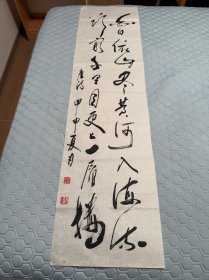 白日依山尽黄河入海流
欲穷千里目更上一層樓
唐诗 甲申夏月